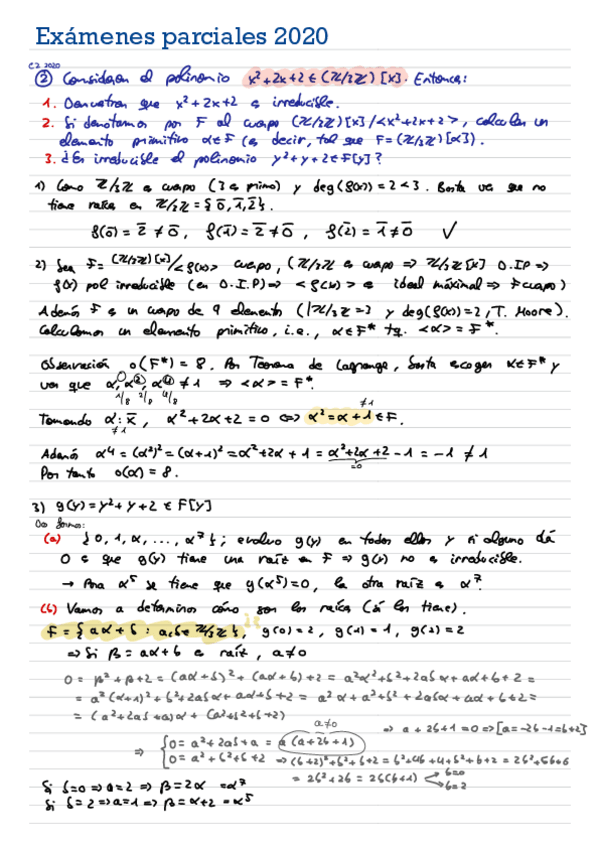 Exámenes parciales 2020
C2 2020
② Consideran el polinomio x²+2x+2 ∈ (ℤ/3ℤ)[x]. Entonces:
1. Demuestran que x²+2x+2 es irreducible.
2. Si denotamos por F al cuerpo (ℤ/3ℤ)[x]/<x²+2x+2>, calculen un
elemento primitivo α∈F (es decir, tal que F=(ℤ/3ℤ)[α]).
3. ¿Es irreducible el polinomio y²+y+2∈F[y]?
1) Como ℤ/3ℤ es cuerpo (3 es primo) y deg(f(x))=2<3. Basta ver que no
tiene raíces en ℤ/3ℤ={0̄,1̄,2̄}.
f(0̄)=2̄≠0̄, f(1̄)=2̄≠0̄, f(2̄)=1̄≠0̄ ✓
2) Sea F=(ℤ/3ℤ)[x]/<f(x)> cuerpo, (ℤ/3ℤ es cuerpo ⇒ ℤ/3ℤ[x] D.I.P ⇒
f(x) pol irreducible (en D.I.P) ⇒ <f(x)> es ideal máximal ⇒ F cuerpo)
Además F es un cuerpo de 9 elementos (|ℤ/3ℤ|=3 y deg(f(x))=2, T. Moore).
Calculamos un elemento primitivo, i.e., α∈F* tq. <α>=F*.
Observación o(F*)=8. Por Teorema de Lagrange, basta escoger α∈F* y
ver que α, α², α⁴ ≠1 ⇒ <α>=F*.
1/8 2/8 4/8
Tomando α:=x̄, α²+2α+2=0 ⇔ α²=α+1∈F.
≠1 ≠1
Además α⁴=(α²)²=(α+1)²=α²+2α+1=α²+2α+2-1=-1≠1
=0
Por tanto o(α)=8.
3) g(y)=y²+y+2∈F[y]
Dos formas:
(a) {0,1,α,...,α⁷}; evaluo g(y) en todos ellos y si alguno dá
0 es que g(y) tiene una raíz en F ⇒ g(y) no es irreducible.
→ Para α⁵ se tiene que g(α⁵)=0, la otra raíz es α⁷.
(b) Vamos a determinar cómo son las raíces (si las tiene).
F={aα+b : a,b∈ℤ/3ℤ}, g(0)=2, g(1)=1, g(2)=2
⇒ Si β=aα+b es raíz, a≠0
0=β²+β+2=(aα+b)²+(aα+b)+2=a²α²+b²+2abα+aα+b+2=
=a²(α+1)+b²+2abα+aα+b+2=a²α+a²+b²+2abα+aα+b+2=
=(a²+2ab+a)α+(a²+b²+b+2)
a≠0 ⇒ a+2b+1=0 ⇒ [a=-2b-1=b+2]
⇒ {0=a²+2ab+a=a(a+2b+1)
{0=a²+b²+b+2 ⇒ (b+2)²+b²+b+2=b²+4b+4+b²+b+2=2b²+5b+6
=2b²+2b=2b(b+1) b=0
b=2
Si b=0⇒a=2⇒β=2α+2=α⁷